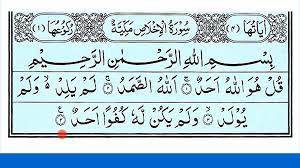 اٰيَاتُهَا (٤) سُوْرَةُ الْاِخْلَاصِ مَكِّيَّةٌ رُكُوْعُهَا (١)
بِسْمِ اللّٰهِ الرَّحْمٰنِ الرَّحِيْمِ
قُلْ هُوَ اللّٰهُ اَحَدٌ ۚ اَللّٰهُ الصَّمَدُ ۚ لَمْ يَلِدْ ۙ وَلَمْ
يُوْلَدْ ۙ وَلَمْ يَكُنْ لَّهٗ كُفُوًا اَحَدٌ